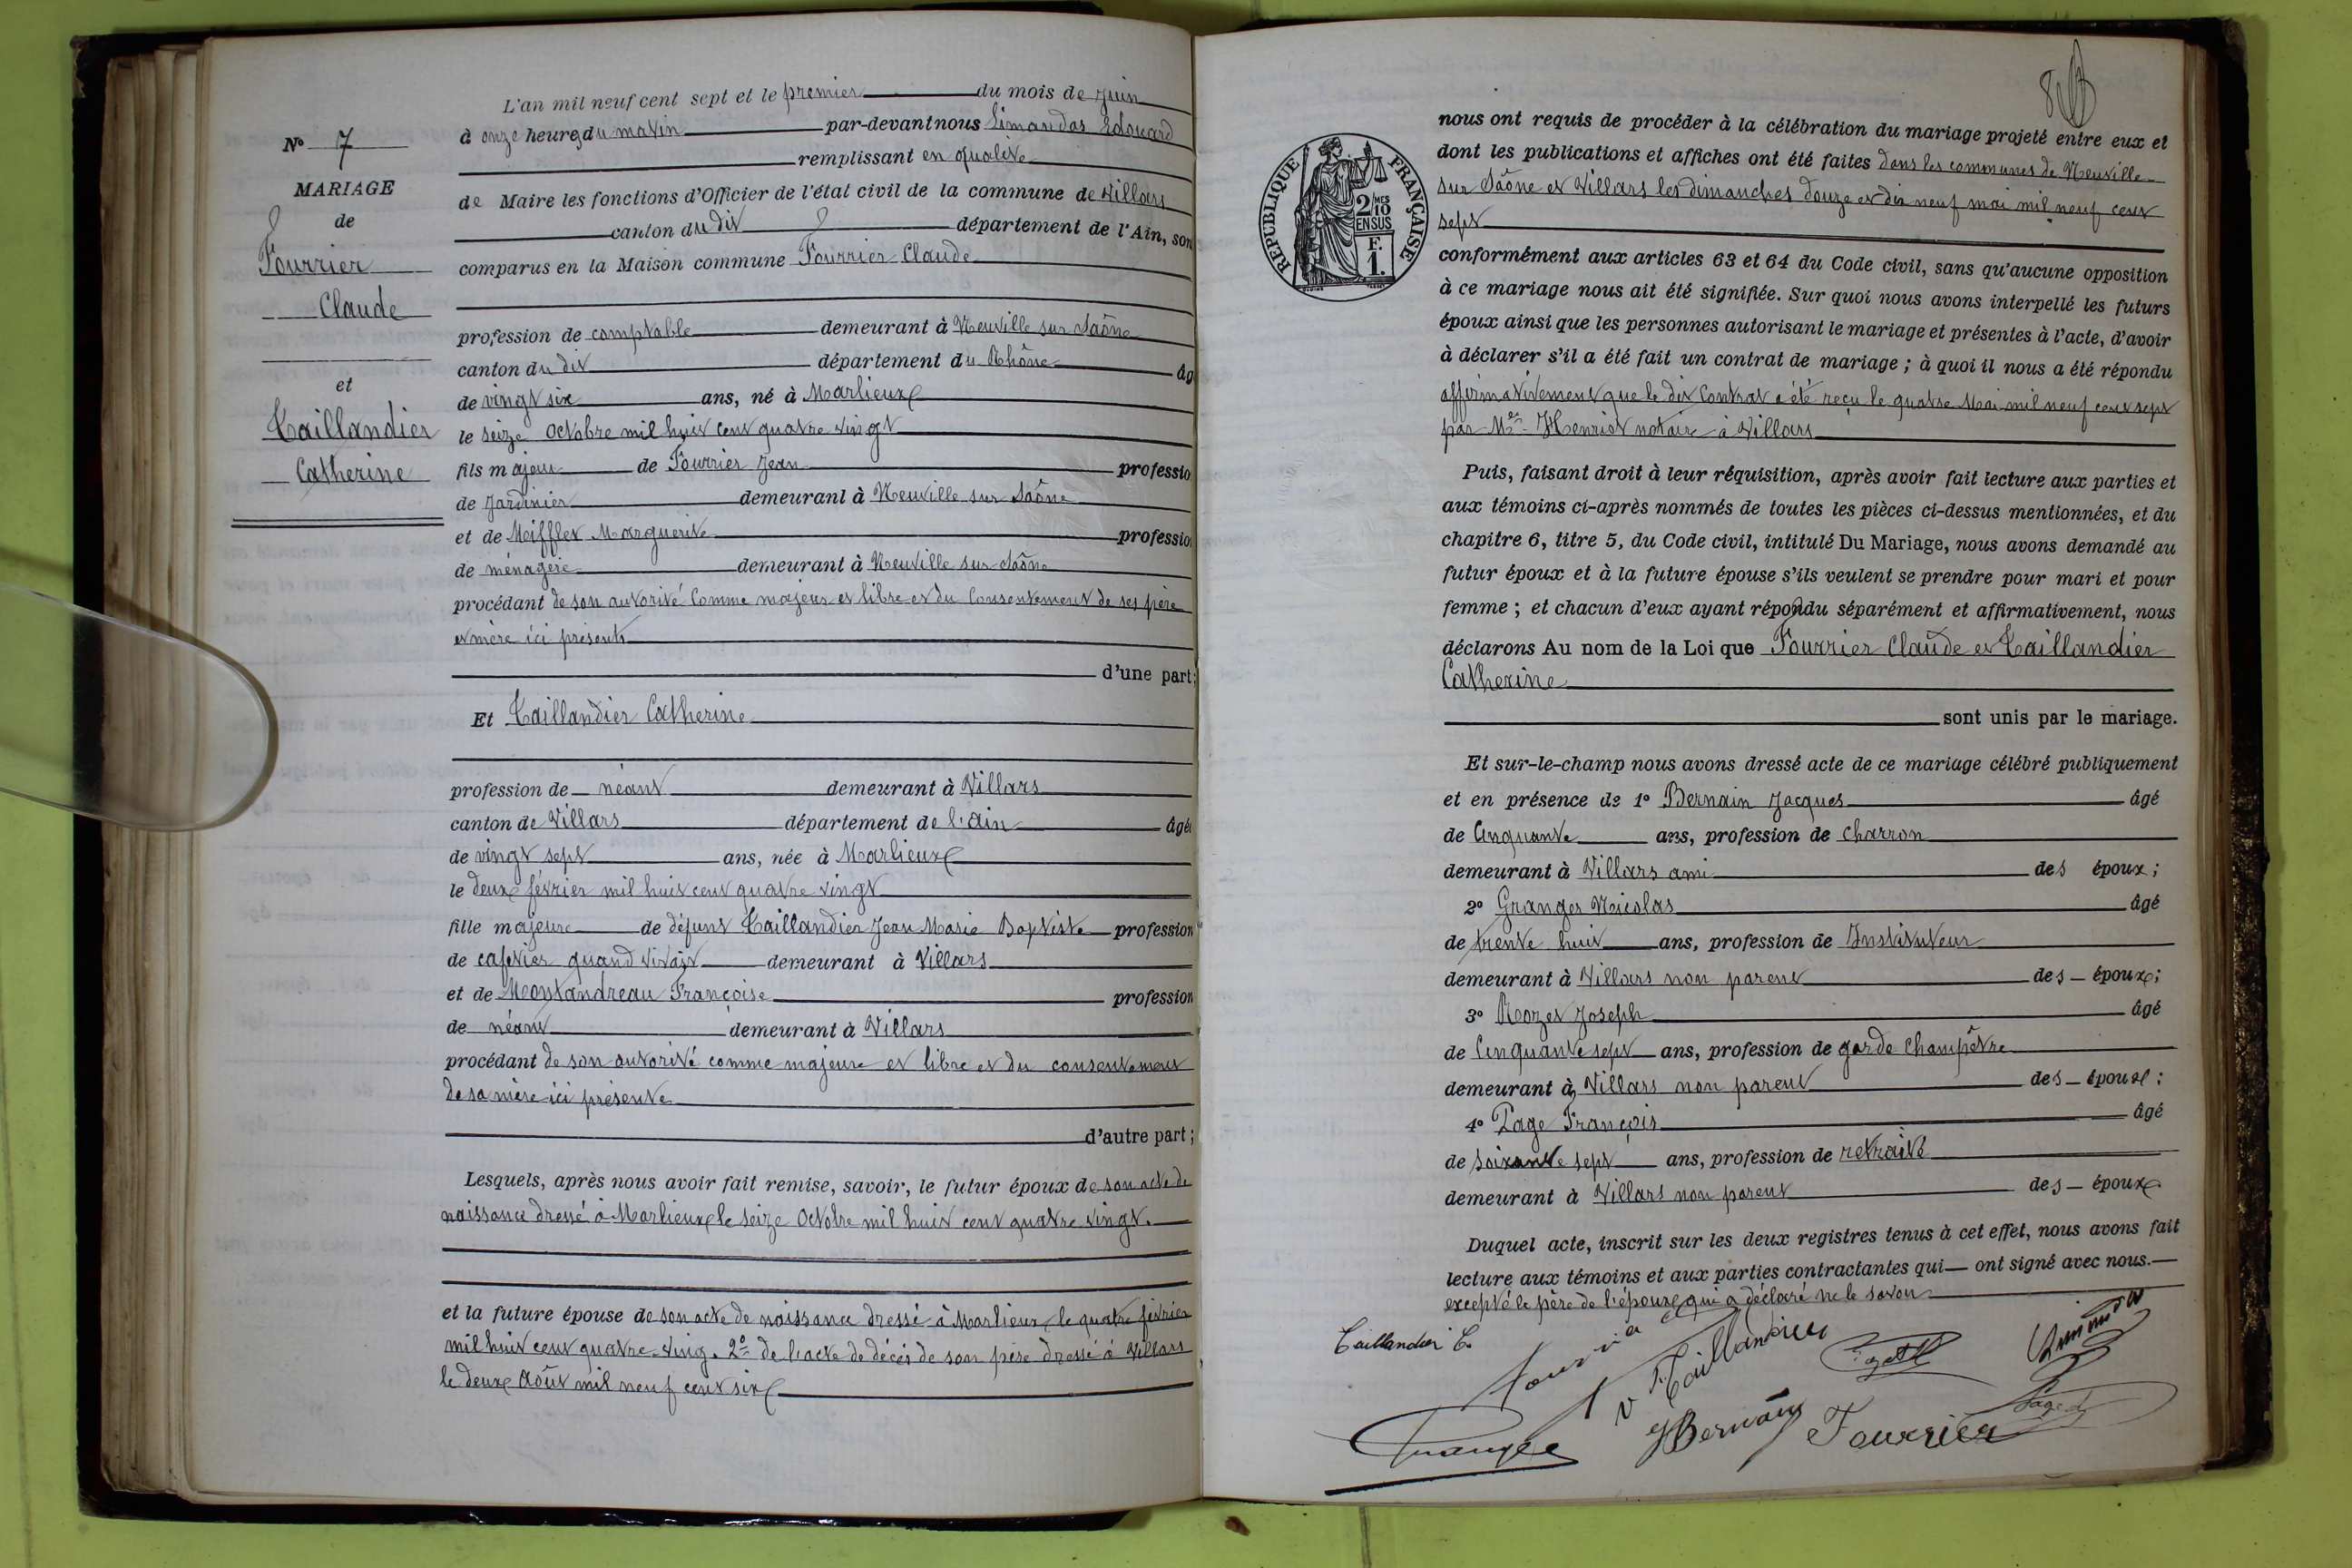 N° 7
MARIAGE
de
Fourrier
Claude
et
Taillandier
Catherine
L'an mil neuf cent sept et le premier du mois de Juin
à onze heures du matin par-devant nous Limandas Edouard
remplissant en qualité
de Maire les fonctions d'Officier de l'état civil de la commune de Villars
canton du dit département de l'Ain, son
comparus en la Maison commune Fourrier Claude
profession de comptable demeurant à Neuville sur Saône
canton du dit département du Rhône âg
de vingt six ans, né à Marlieux
le seize Octobre mil huit cent quatre vingt
fils majeur de Fourrier Jean professio
de Jardinier demeurant à Neuville sur Saône
et de Mifflet Marguerite profession
de ménagère demeurant à Neuville sur Saône
procédant de son autorité Comme majeur et libre et du Consentement de ses père
et mère ici présents
d'une part;
Et Taillandier Catherine
profession de néant demeurant à Villars
canton de Villars département de l'ain âgé
de vingt sept ans, née à Marlieux
le deux février mil huit cent quatre vingt
fille majeure de défunt Taillandier Jean Marie Baptiste profession
de cafetier quand vivait demeurant à Villars
et de Montandreau Françoise profession
de néant demeurant à Villars
procédant de son autorité comme majeure et libre et du consentement
de sa mère ici présente
d'autre part;
Lesquels, après nous avoir fait remise, savoir, le futur époux de son acte de
naissance dressé à Marlieux le seize Octobre mil huit cent quatre vingt.
et la future épouse de son acte de naissance dressé à Marlieux le quatre février
mil huit cent quatre-ving. 2° de l'acte de décès de son père dressé à Villars
le deux Août mil neuf cent six
8
RÉPUBLIQUE FRANÇAISE
2/MES
10
EN SUS
F.
1.
nous ont requis de procéder à la célébration du mariage projeté entre eux et
dont les publications et affiches ont été faites dans les communes de Neuville
sur Saône et Villars les dimanches douze et dix neuf mai mil neuf cent
sept
conformément aux articles 63 et 64 du Code civil, sans qu'aucune opposition
à ce mariage nous ait été signifiée. Sur quoi nous avons interpellé les futurs
époux ainsi que les personnes autorisant le mariage et présentes à l'acte, d'avoir
à déclarer s'il a été fait un contrat de mariage; à quoi il nous a été répondu
affirmativement que le dit Contrat a été reçu le quatre Mai mil neuf cent sept
par Me Henriot notaire à Villars
Puis, faisant droit à leur réquisition, après avoir fait lecture aux parties et
aux témoins ci-après nommés de toutes les pièces ci-dessus mentionnées, et du
chapitre 6, titre 5, du Code civil, intitulé Du Mariage, nous avons demandé au
futur époux et à la future épouse s'ils veulent se prendre pour mari et pour
femme; et chacun d'eux ayant répondu séparément et affirmativement, nous
déclarons Au nom de la Loi que Fourrier Claude et Taillandier
Catherine
sont unis par le mariage.
Et sur-le-champ nous avons dressé acte de ce mariage célébré publiquement
et en présence de 1° Bernain Jacques âgé
de Cinquante ans, profession de charron
demeurant à Villars ami des époux;
2° Granger Nicolas âgé
de trente huit ans, profession de Instituteur
demeurant à Villars non parent des époux;
3° Rozet Joseph âgé
de Cinquante sept ans, profession de garde Champêtre
demeurant à Villars non parent des époux;
4° Page François âgé
de soixante sept ans, profession de retraité
demeurant à Villars non parent des époux
Duquel acte, inscrit sur les deux registres tenus à cet effet, nous avons fait
lecture aux témoins et aux parties contractantes qui ont signé avec nous.
excepté le père de l'épouse qui a déclaré ne le savoir
Taillandier C.
Fourrier
V. Taillandier
Granger
JBernain
Fourrier
Page